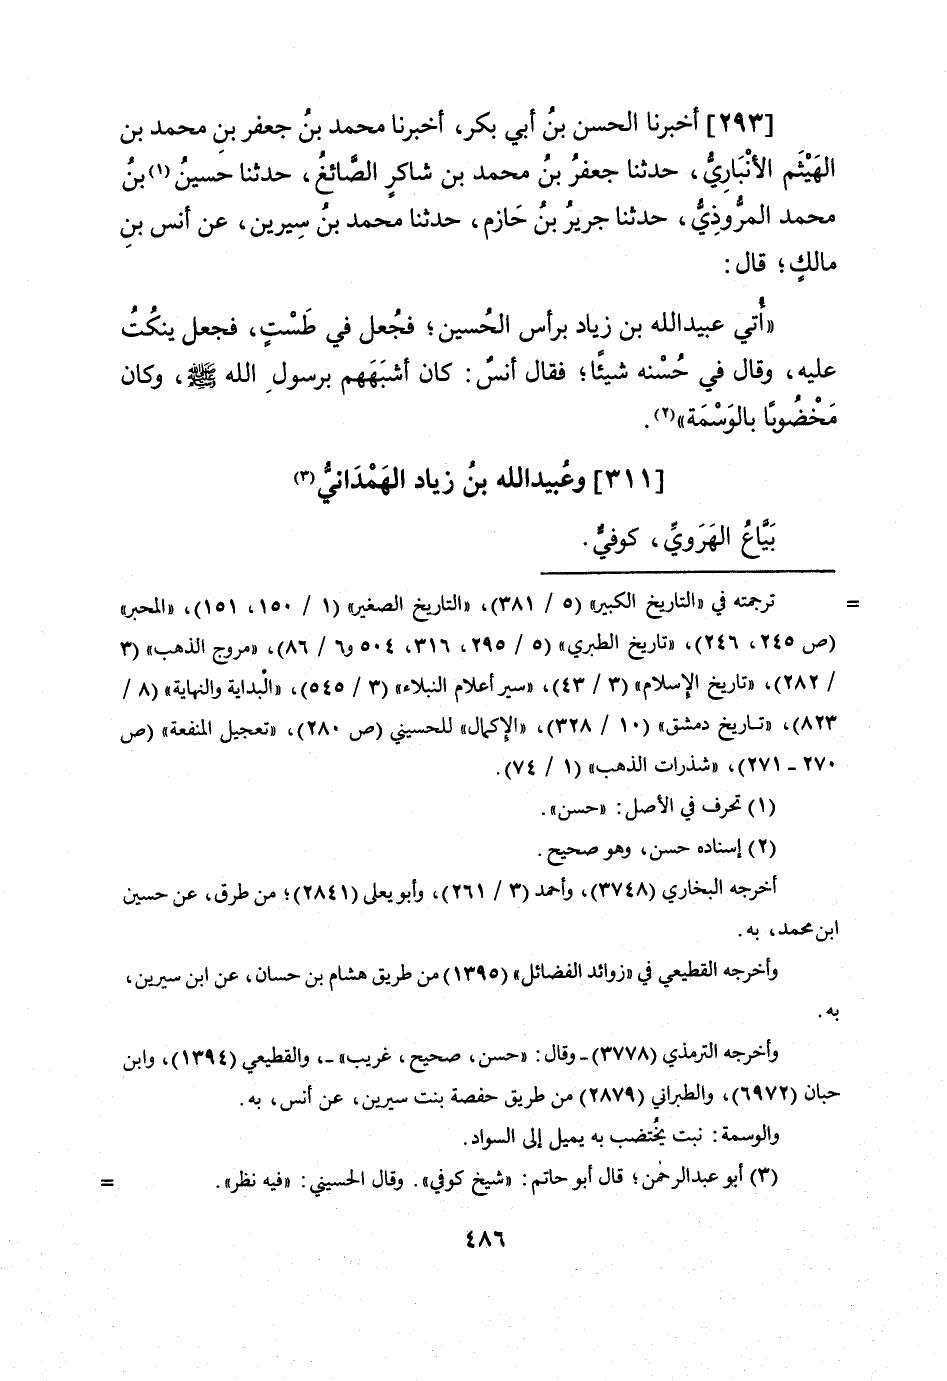 [٢٩٣] أخبرنا الحسن بنُ أبي بكر، أخبرنا محمد بنُ جعفر بنِ محمد بن
الهَيْثَم الأنْبَارِيُّ، حدثنا جعفرُ بنُ محمد بن شاكرٍ الصَّائغُ، حدثنا حسينُ(١) بنُ
محمد المرُّوذِيُّ، حدثنا جريرُ بنُ حَازم، حدثنا محمد بنُ سِيرين، عن أنس بنِ
مالكٍ؛ قال:
«أُتي عبيدالله بن زياد برأس الحُسين؛ فجُعل في طَسْتٍ، فجعل ينكُتُ
عليه، وقال في حُسْنه شيئًا؛ فقال أنسٌ: كان أشبَهَهم برسولِ الله ﷺ، وكان
مَخْضُوبًا بالوَسْمَة»(٢).
[٣١١] وعُبيدالله بنُ زياد الهَمْدَانيُّ(٣)
بَيَّاعُ الهَرَويِّ، كوفيٌّ.
= ترجمته في «التاريخ الكبير» (٥ / ٣٨١)، «التاريخ الصغير» (١ / ١٥٠، ١٥١)، «المحبر»
(ص ٢٤٥، ٢٤٦)، «تاريخ الطبري» (٥ / ٢٩٥، ٣١٦، ٥٠٤ و٦ / ٨٦)، «مروج الذهب» (٣
/ ٢٨٢)، «تاريخ الإسلام» (٣ / ٤٣)، «سير أعلام النبلاء» (٣ / ٥٤٥)، «الْبداية والنهاية» (٨ /
٨٢٣)، «تاريخ دمشق» (١٠ / ٣٢٨)، «الإكمال» للحسيني (ص ٢٨٠)، «تعجيل المنفعة» (ص
٢٧٠ ـ ٢٧١)، «شذرات الذهب» (١ / ٧٤).
(١) تحرف في الأصل: «حسن».
(٢) إسناده حسن، وهو صحيح.
أخرجه البخاري (٣٧٤٨)، وأحمد (٣ / ٢٦١)، وأبو يعلى (٢٨٤١)؛ من طرق، عن حسين
ابن محمد، به.
وأخرجه القطيعي في «زوائد الفضائل» (١٣٩٥) من طريق هشام بن حسان، عن ابن سيرين،
به.
وأخرجه الترمذي (٣٧٧٨) ـ وقال: «حسن، صحيح، غريب» ـ، والقطيعي (١٣٩٤)، وابن
حبان (٦٩٧٢)، والطبراني (٢٨٧٩) من طريق حفصة بنت سيرين، عن أنس، به.
والوسمة: نبت يُختضب به يميل إلى السواد.
(٣) أبو عبدالرحمٰن؛ قال أبو حاتم: «شيخ كوفي». وقال الحسيني: «فيه نظر». =
٤٨٦